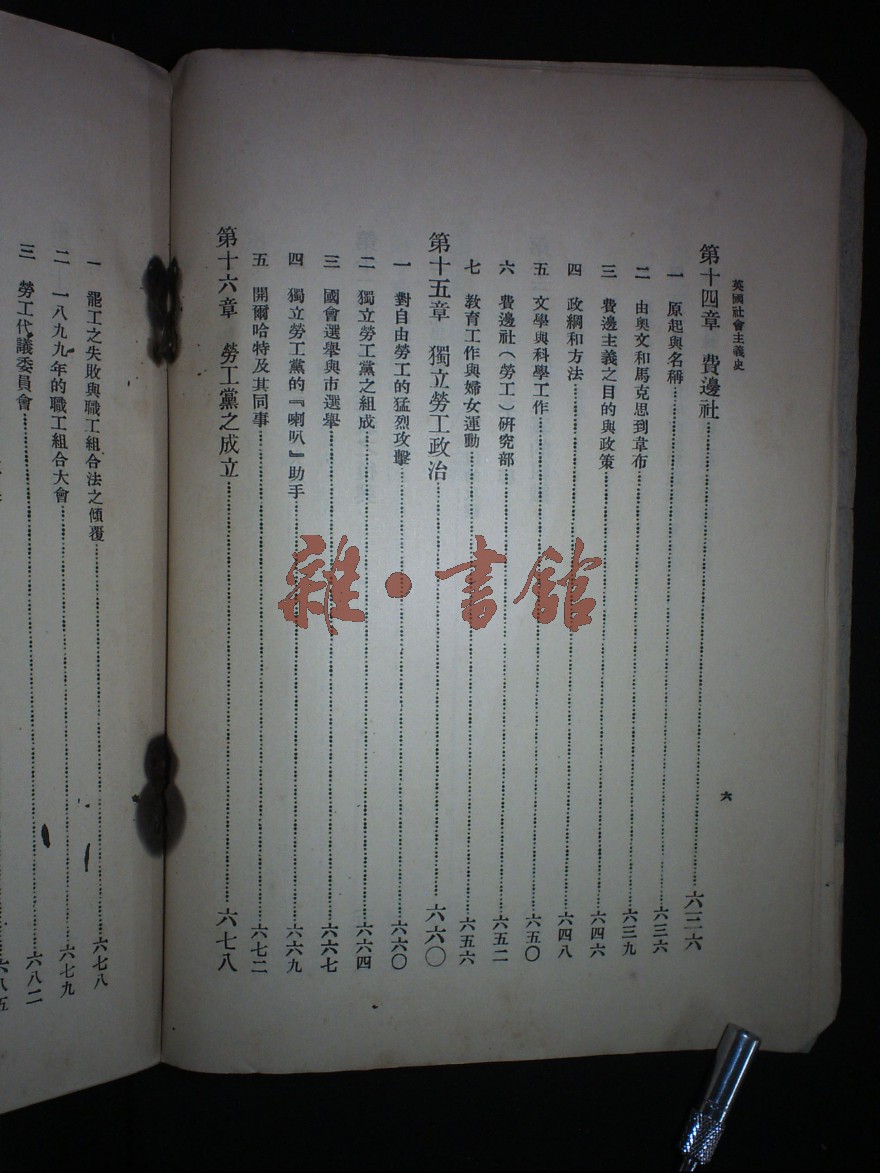 英國社會主義史
六
第十四章 費邊社……六三六
一 原起與名稱……六三六
二 由奧文和馬克思到韋布……六三九
三 費邊主義之目的與政策……六四六
四 政綱和方法……六四八
五 文學與科學工作……六五〇
六 費邊社(勞工)研究部……六五二
七 教育工作與婦女運動……六五六
第十五章 獨立勞工政治……六六〇
一 對自由勞工的猛烈攻擊……六六〇
二 獨立勞工黨之組成……六六四
三 國會選舉與市選舉……六六七
四 獨立勞工黨的『喇叭』助手……六六九
五 開爾哈特及其同事……六七二
第十六章 勞工黨之成立……六七八
一 罷工之失敗與職工組合法之傾覆……六七八
二 一八九九年的職工組合大會……六七九
三 勞工代議委員會……六八二
六八五
雜·書館